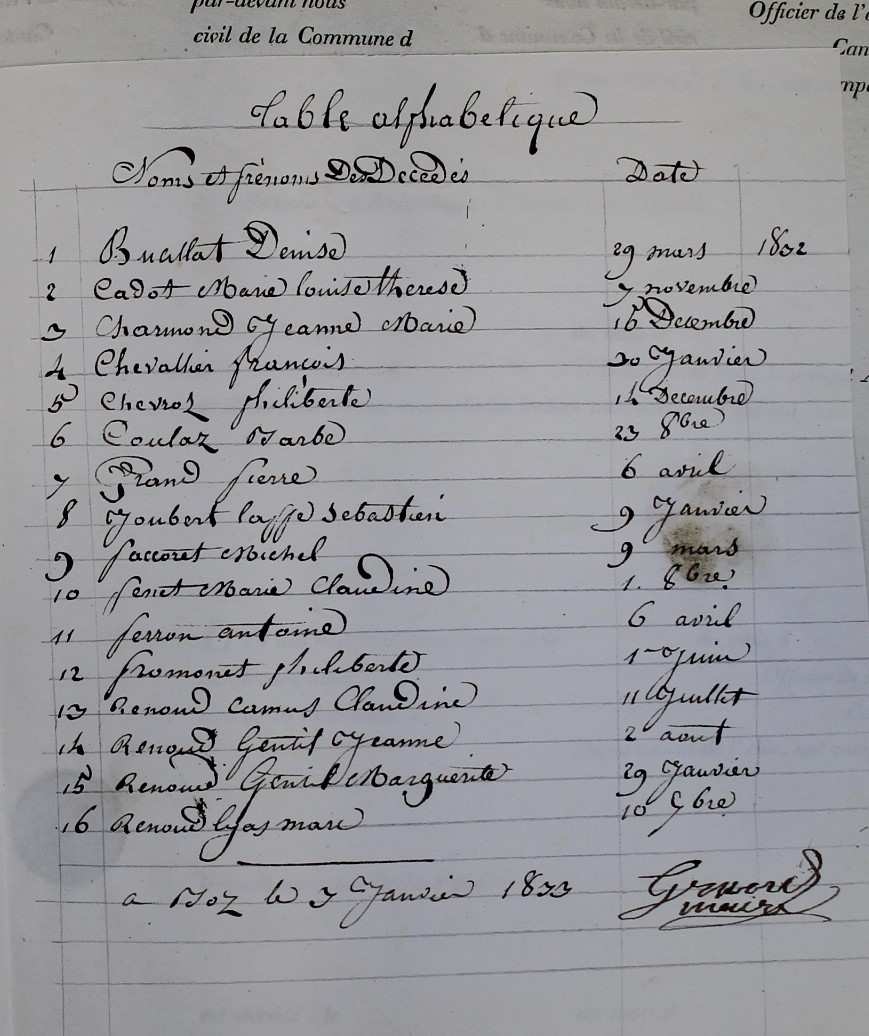 par-devant nous
Officier de l'é
civil de la Commune d
Can
Table alphabetique
Noms et prénoms Des Décédés Date
1 Buallat Denise 29 mars 1832
2 Cadot Marie louise therese 7 novembre
3 Charmond Jeanne Marie 16 Decembre
4 Chevallier françois 30 Janvier
5 Chevroz philiberte 14 Decembre
6 Coulaz Barbe 23 8bre
7 Grand pierre 6 avril
8 Joubert laffe Sebastien 9 Janvier
9 paccoret Michel 9 mars
10 penet Marie Claudine 1. 8bre.
11 perron antoine 6 avril
12 promonet philiberte 1er Juin
13 Renoud Camus Claudine 11 Juillet
14 Renoud Gentil Jeanne 2 aout
15 Renoud Gentil Marguerite 29 Janvier
16 Renoud lyas marc 10 9bre
a Boz le 3 Janvier 1833
maire